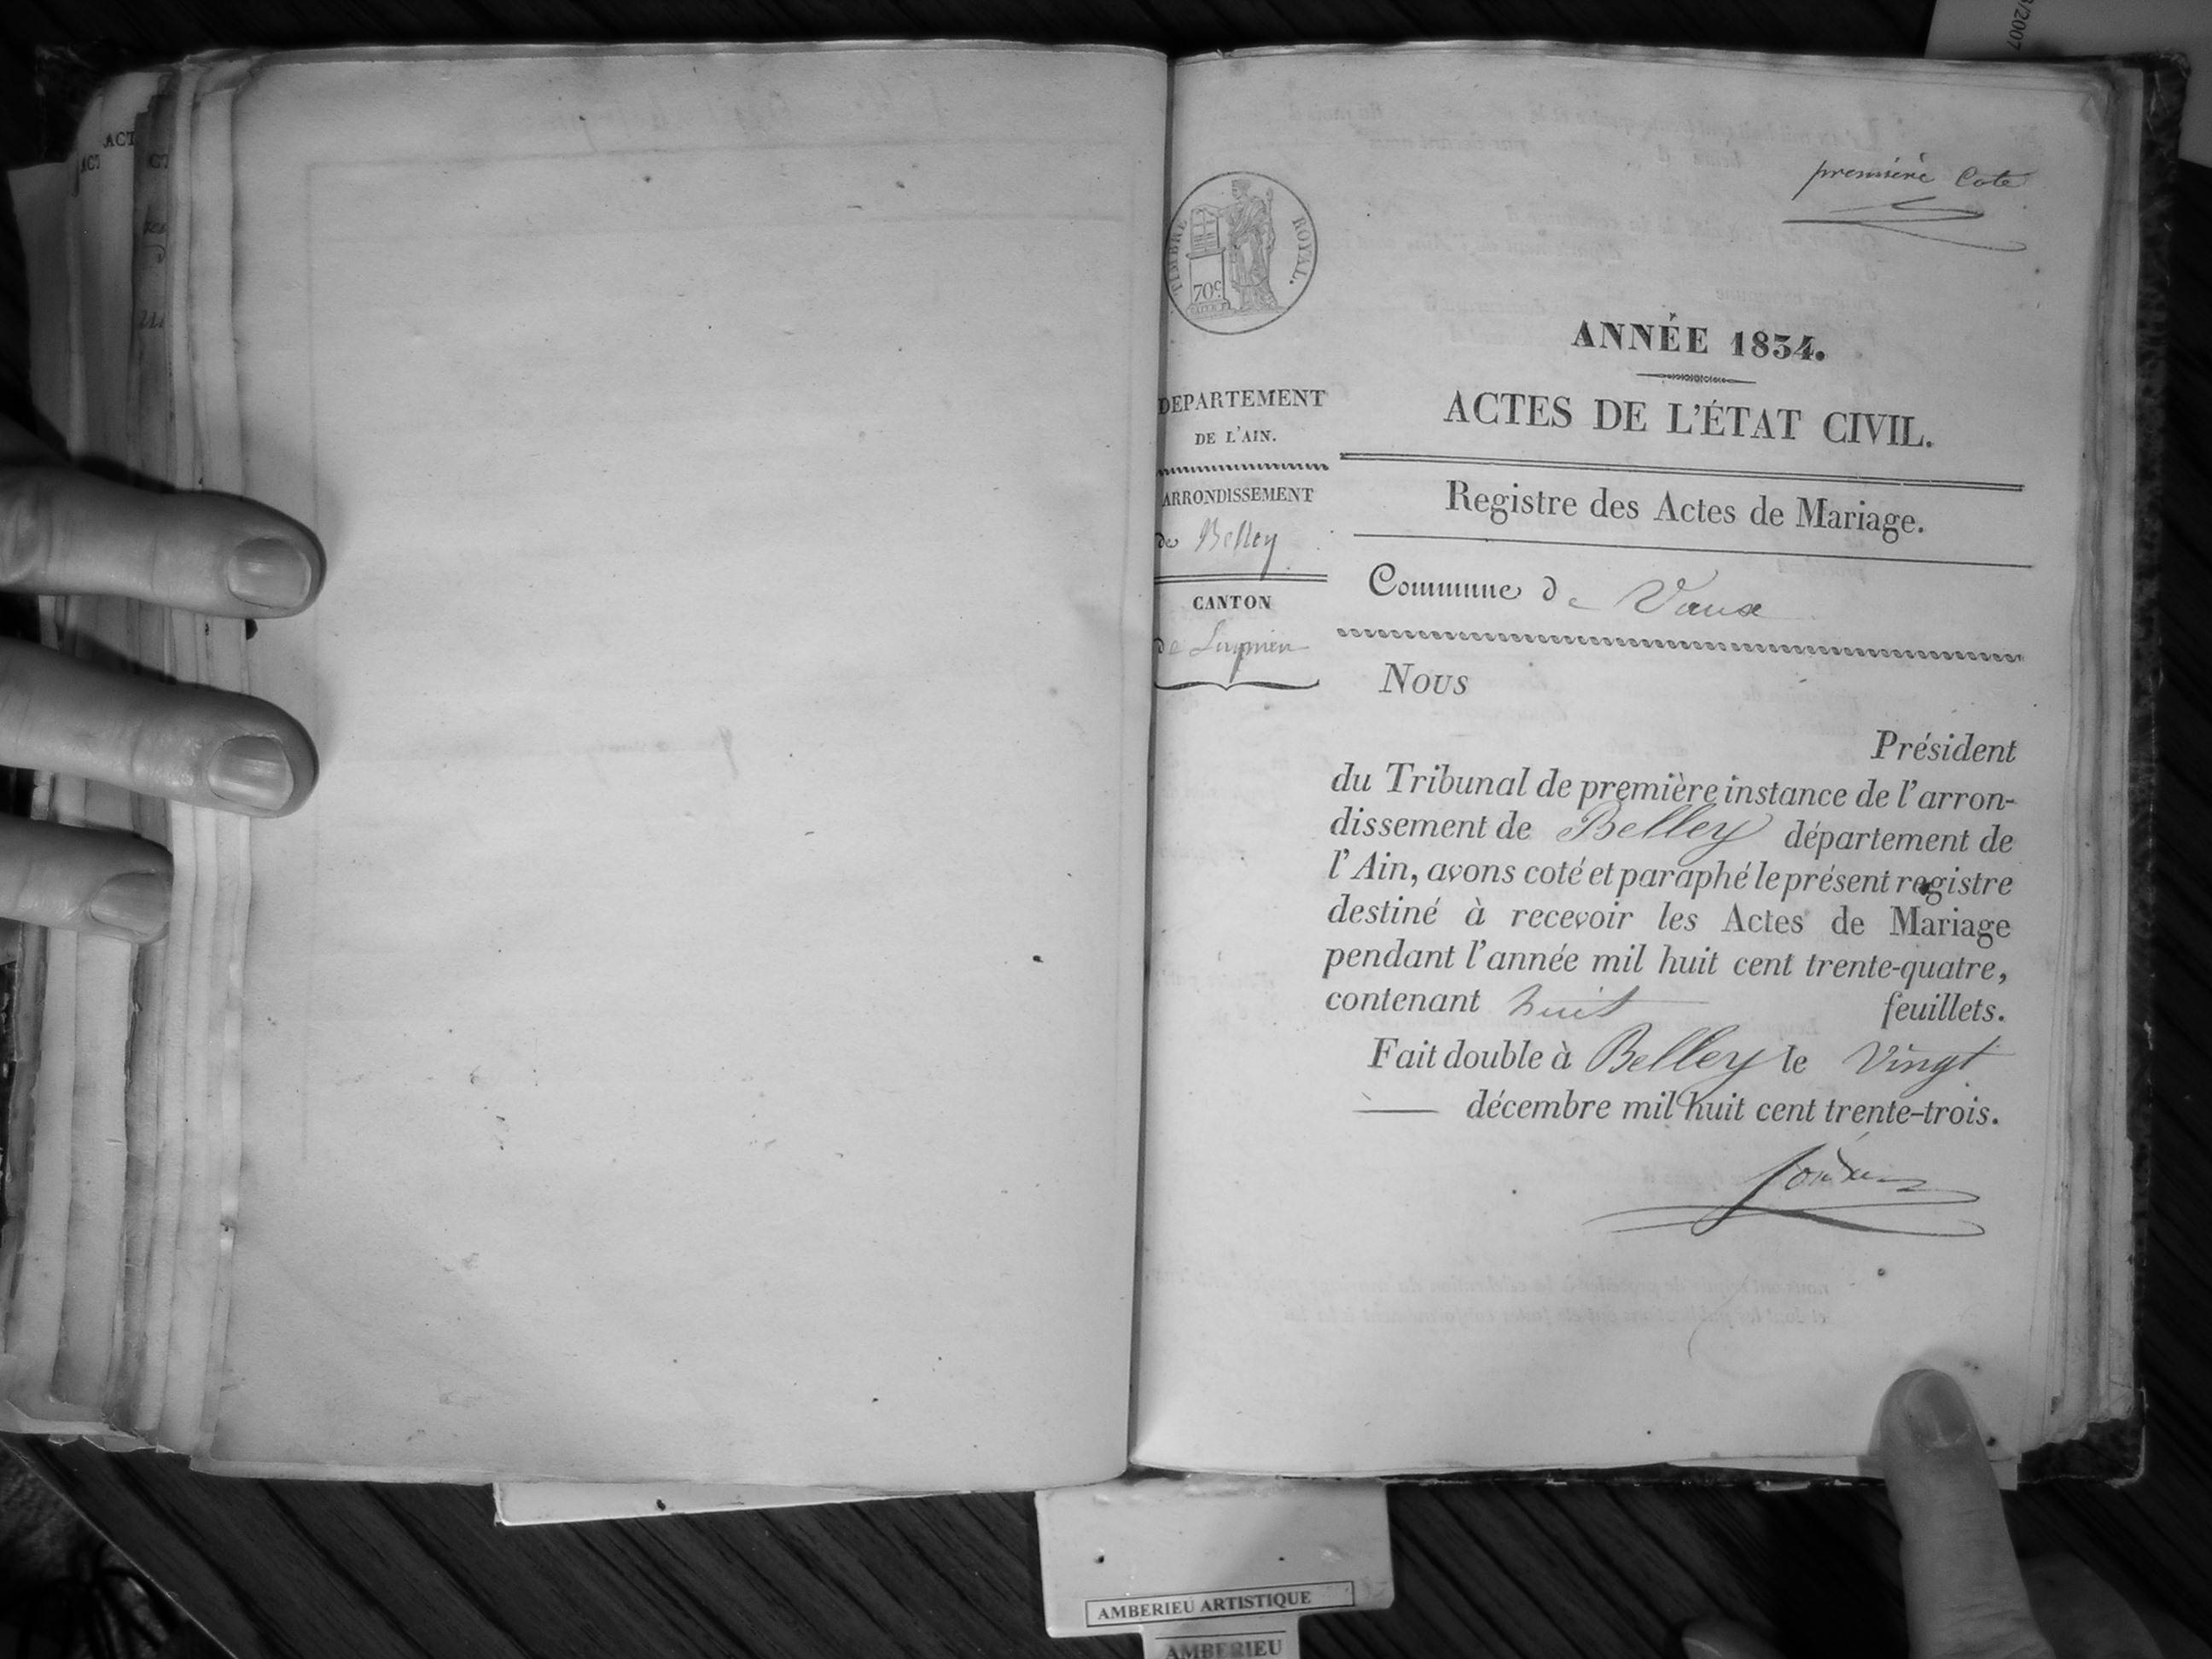 ACT
ACT
première Cote
TIMBRE ROYAL.
70c
ANNÉE 1834.
DEPARTEMENT
DE L'AIN.
ACTES DE L'ÉTAT CIVIL.
ARRONDISSEMENT
de Belley
Registre des Actes de Mariage.
CANTON
Commune de Vaux
Nous
Président
du Tribunal de première instance de l'arron-
dissement de Belley département de
l'Ain, avons coté et paraphé le présent registre
destiné à recevoir les Actes de Mariage
pendant l'année mil huit cent trente-quatre,
contenant huit feuillets.
Fait double à Belley le Vingt
décembre mil huit cent trente-trois.
AMBERIEU ARTISTIQUE
AMBERIEU
/2007